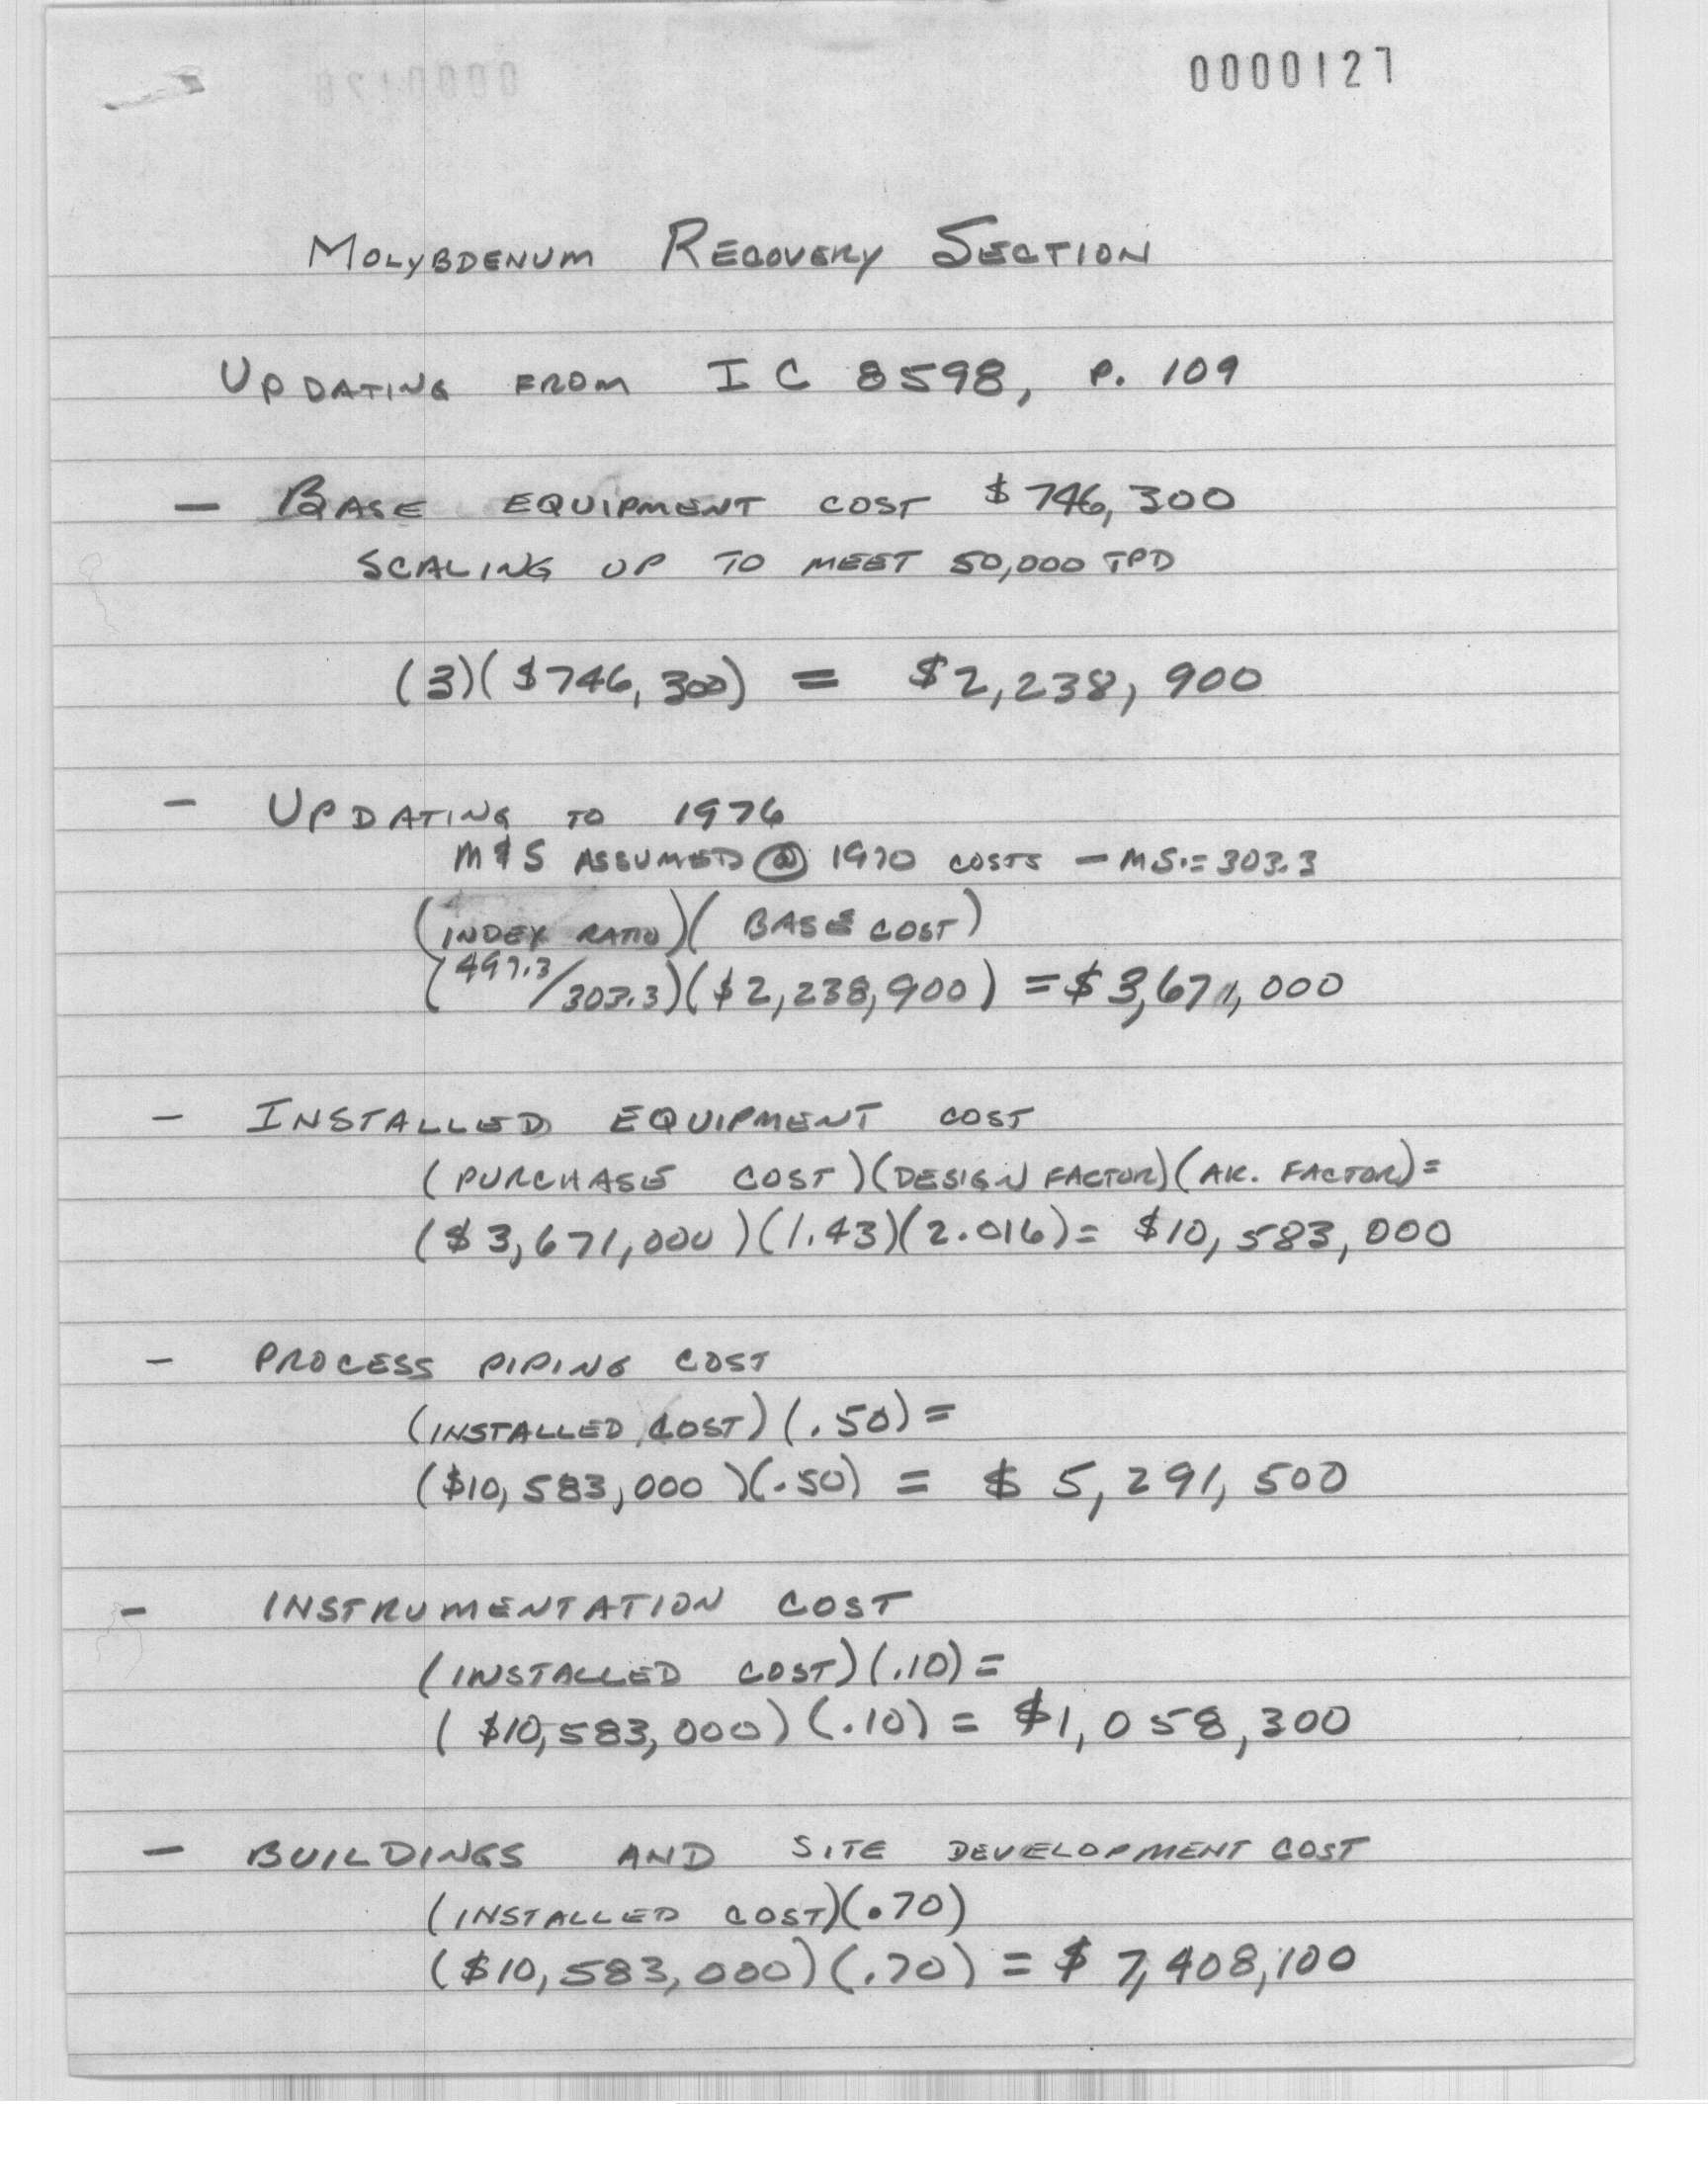 0000127
MOLYBDENUM RECOVERY SECTION
UPDATING FROM IC 8598, P. 109
- BASE EQUIPMENT COST $746,300
SCALING UP TO MEET 50,000 TPD
(3)($746,300) = $2,238,900
- UPDATING TO 1976
M&S ASSUMED @ 1970 COSTS - MS.= 303.3
(INDEX RATIO)(BASE COST)
(497.3/303.3)($2,238,900) = $3,671,000
- INSTALLED EQUIPMENT COST
(PURCHASE COST)(DESIGN FACTOR)(AK. FACTOR)=
($3,671,000)(1.43)(2.016)= $10,583,000
- PROCESS PIPING COST
(INSTALLED COST)(.50)=
($10,583,000)(.50) = $5,291,500
- INSTRUMENTATION COST
(INSTALLED COST)(.10)=
($10,583,000)(.10) = $1,058,300
- BUILDINGS AND SITE DEVELOPMENT COST
(INSTALLED COST)(.70)
($10,583,000)(.70) = $7,408,100